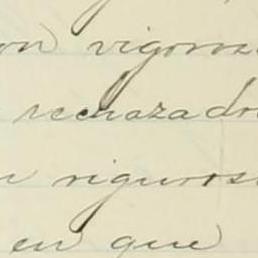 on vigoros
rechazado
n riguros
en que